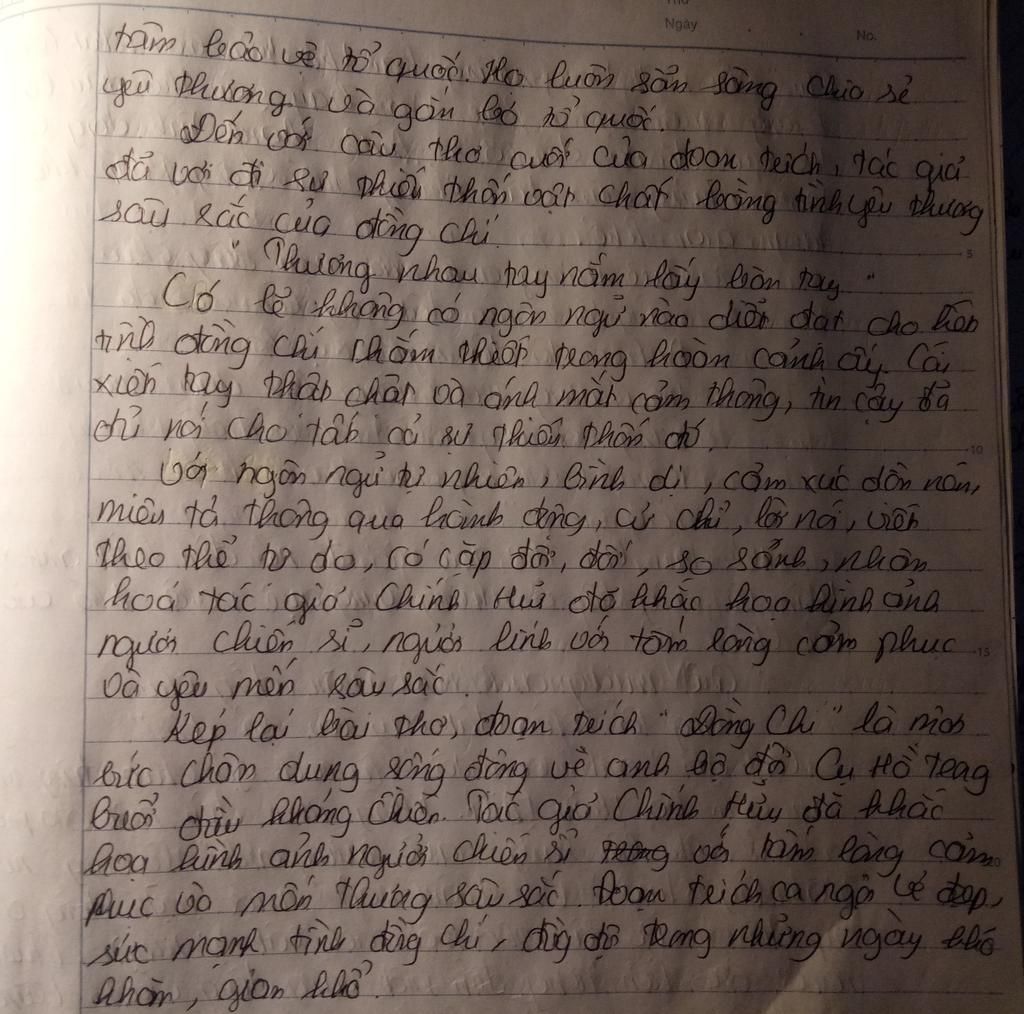 Thứ
Ngày
No.
tâm bảo vệ tổ quốc. Họ luôn sẵn sàng chia sẻ
yêu thương và gắn bó tổ quốc.
Đến với câu thơ cuối của đoạn trích, tác giả
đã vơi đi sự thiếu thốn vật chất bằng tình yêu thương
sâu sắc của đồng chí.
"Thương nhau tay nắm lấy bàn tay"
Có lẽ không có ngôn ngữ nào diễn đạt cho hết
tình đồng chí thắm thiết trong hoàn cảnh ấy. Cái
xiết tay thật chặt và ánh mắt cảm thông, tin cậy đã
đủ nói cho tất cả sự thiếu thốn đó.
5
10
Với ngôn ngữ tự nhiên, bình dị, cảm xúc dồn nén,
miêu tả thông qua hành động, cử chỉ, lời nói, viết
theo thể tự do, có cặp đôi, đối, so sánh, nhân
hoá tác giả Chính Hữu đã khắc hoạ hình ảnh
người chiến sĩ, người lính với tấm lòng cảm phục
15
và yêu mến sâu sắc.
Kép lại bài thơ, đoạn trích "Đồng Chí" là một
bức chân dung sống động về anh bộ đội Cụ Hồ trong
buổi đầu kháng chiến. Tác giả Chính Hữu đã khắc
hoạ hình ảnh người chiến sĩ với tấm lòng cảm
phục và mến thương sâu sắc. Đoạn trích ca ngợi vẻ đẹp,
sức mạnh tình đồng chí, đồng đội trong những ngày khó
khăn, gian khổ.